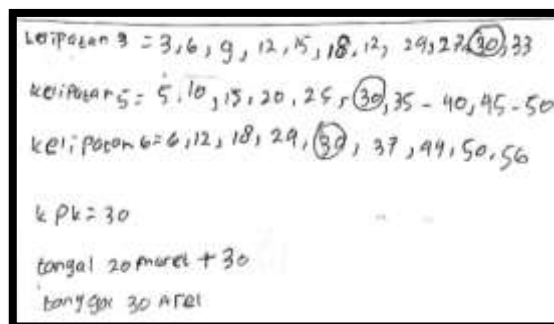 kelipatan 3 = 3, 6, 9, 12, 15, 18, 12, 24, 27, 30, 33
kelipatan 5 = 5, 10, 15, 20, 25, 30, 35 - 40, 45 - 50
kelipatan 6 = 6, 12, 18, 24, 30, 37, 44, 50, 56
kpk = 30
tangal 20 maret + 30
tanggal 30 Arel